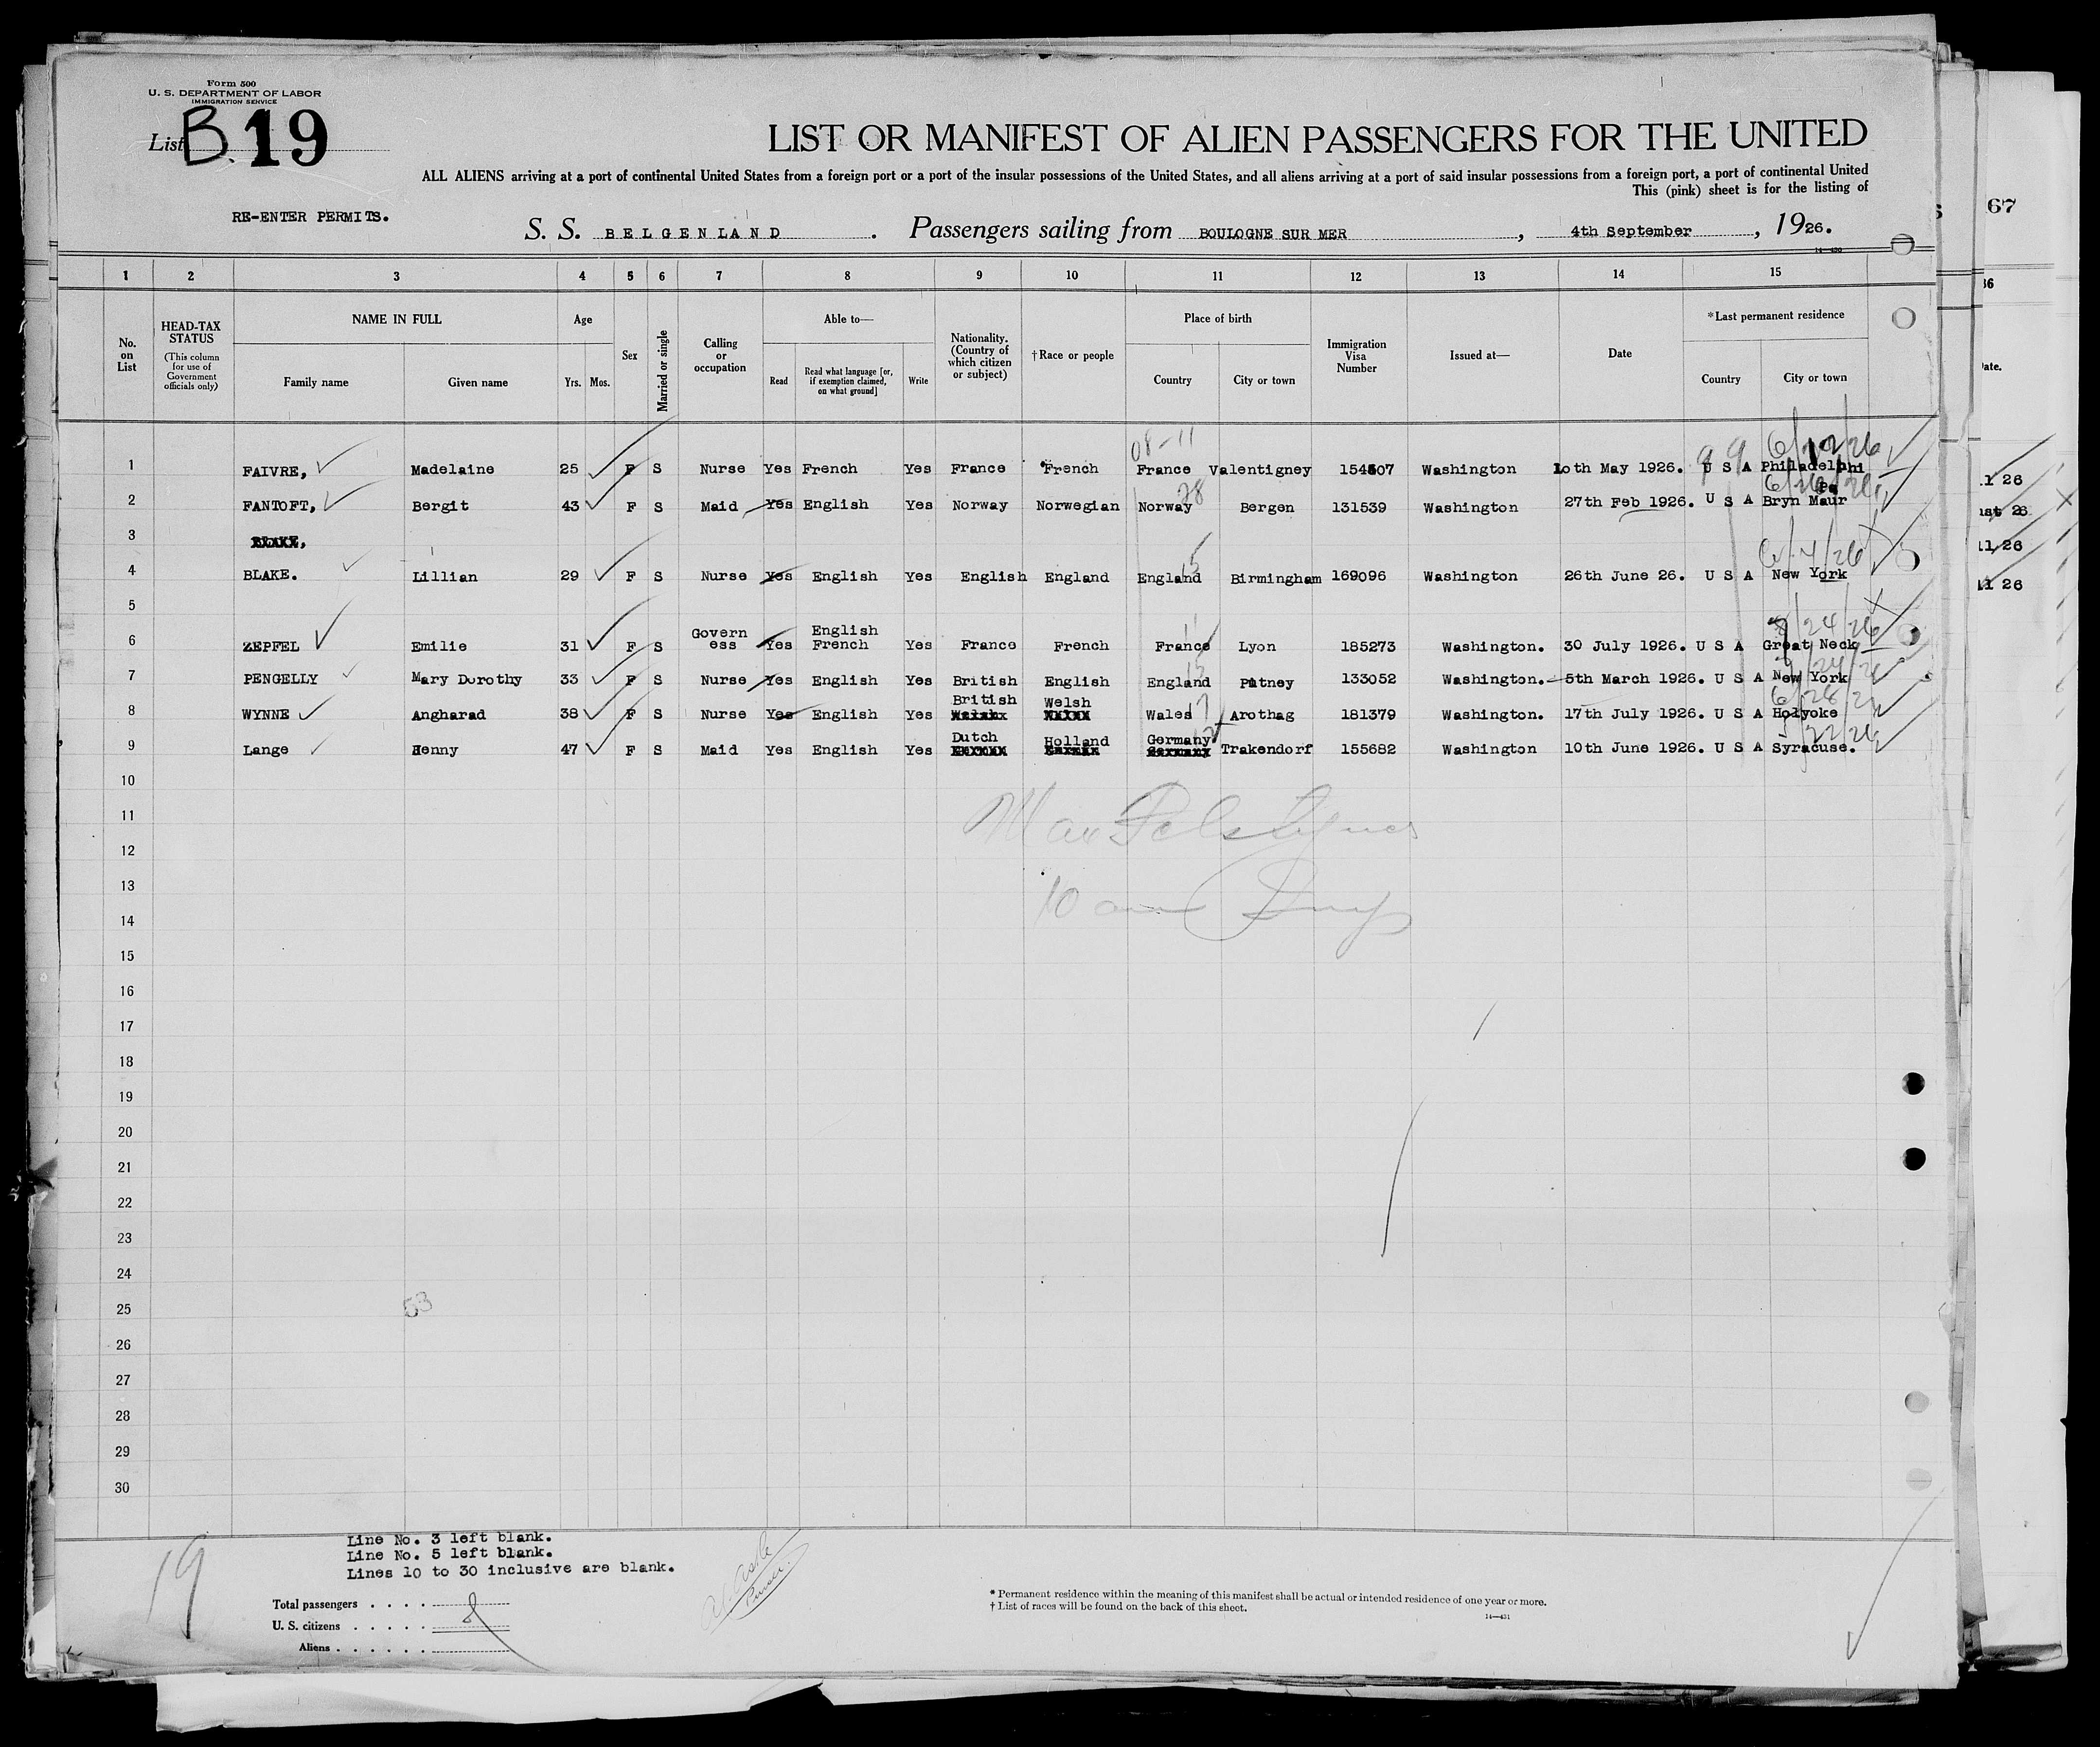 Form 500
U. S. DEPARTMENT OF LABOR
IMMIGRATION SERVICE
List B. 19
LIST OR MANIFEST OF ALIEN PASSENGERS FOR THE UNITED
ALL ALIENS arriving at a port of continental United States from a foreign port or a port of the insular possessions of the United States, and all aliens arriving at a port of said insular possessions from a foreign port, a port of continental United
This (pink) sheet is for the listing of
RE-ENTER PERMITS.
S. S. BELGENLAND . Passengers sailing from BOULOGNE SUR MER , 4th September , 1926.
14—430
1 2 3 4 5 6 7 8 9 10 11 12 13 14 15
No. on List
HEAD-TAX STATUS (This column for use of Government officials only)
NAME IN FULL
Family name Given name
Age
Yrs. Mos.
Sex
Married or single
Calling or occupation
Able to—
Read
Read what language [or, if exemption claimed, on what ground]
Write
Nationality. (Country of which citizen or subject)
†Race or people
Place of birth
Country City or town
Immigration Visa Number
Issued at—
Date
*Last permanent residence
Country City or town
08-11
1 FAIVRE, Madelaine 25 F S Nurse Yes French Yes France French France Valentigney 154507 Washington 10th May 1926. U S A Philadelphi
28
Pa
2 FANTOFT, Bergit 43 F S Maid Yes English Yes Norway Norwegian Norway Bergen 131539 Washington 27th Feb 1926. U S A Bryn Maur
3 BLAKE,
4 BLAKE. Lillian 29 F S Nurse Yes English Yes English England England Birmingham 169096 Washington 26th June 26. U S A New York
5
6 ZEPFEL Emilie 31 F S Govern ess Yes English French Yes France French France Lyon 185273 Washington. 30 July 1926. U S A Great Neck
7 PENGELLY Mary Dorothy 33 F S Nurse Yes English Yes British English England Putney 133052 Washington. 5th March 1926. U S A New York
8 WYNNE Angharad 38 F S Nurse Yes English Yes British Welsh Wales Arothag 181379 Washington. 17th July 1926. U S A Holyoke
9 Lange Henny 47 F S Maid Yes English Yes Dutch Holland Germany Trakendorf 155682 Washington 10th June 1926. U S A Syracuse.
10
11
12
13
14
15
16
17
18
19
20
21
22
23
24
25
53
26
27
28
29
30
Line No. 3 left blank.
Line No. 5 left blank.
Lines 10 to 30 inclusive are blank.
19
Total passengers . . . . 8
U. S. citizens . . . . .
Aliens . . . . . .
* Permanent residence within the meaning of this manifest shall be actual or intended residence of one year or more.
† List of races will be found on the back of this sheet.
14—431